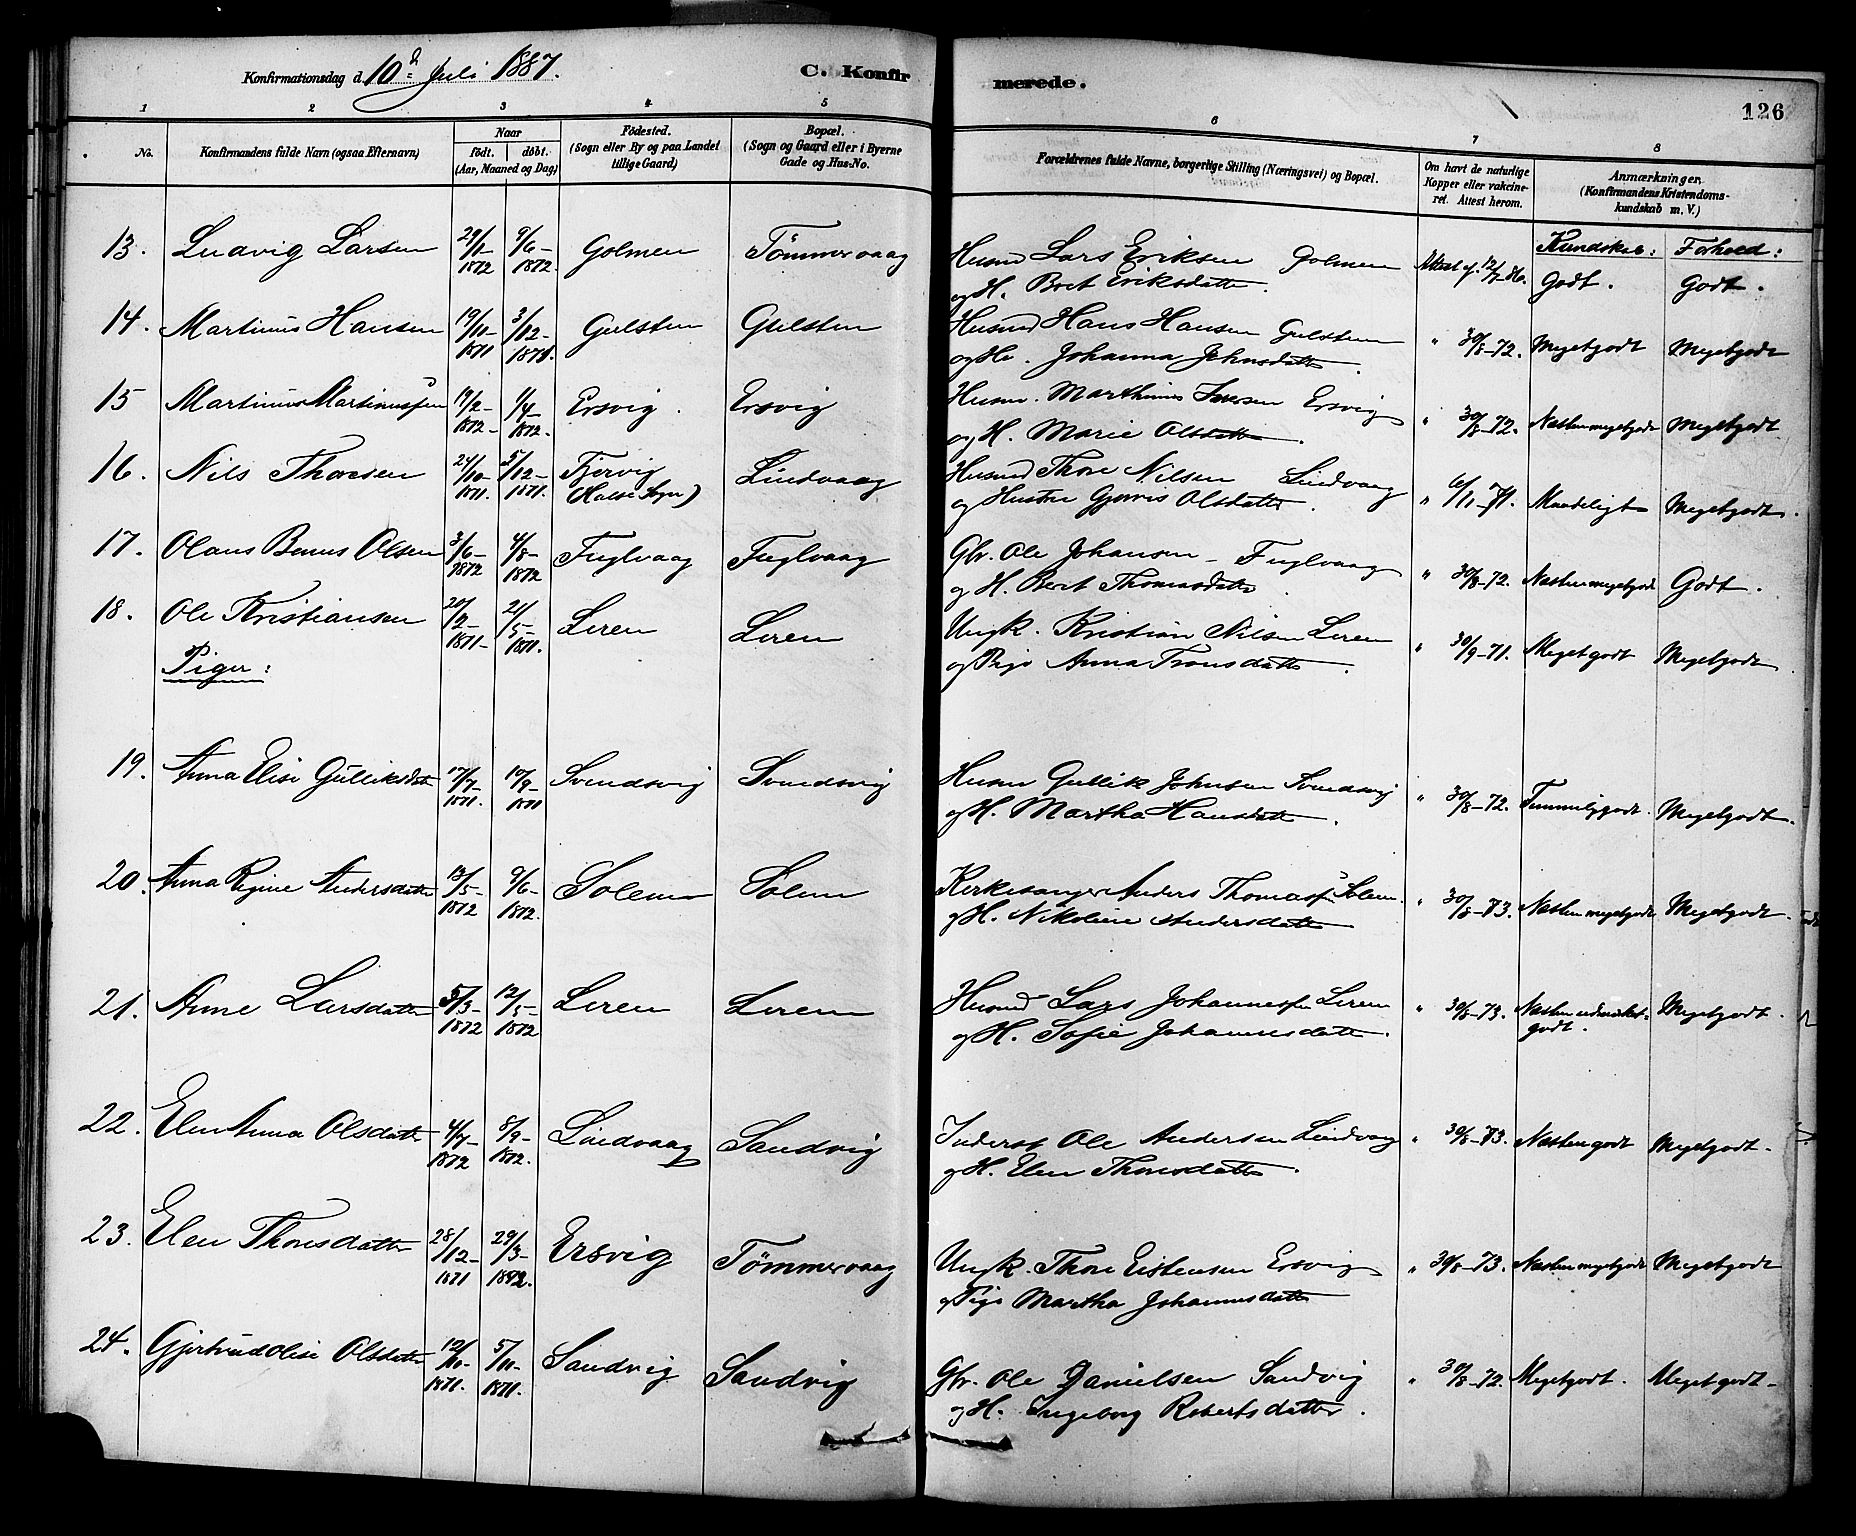 Konfirmationsdag d. 10de Juli 1887.
C. Konfirmerede.
126
1 2 3 4 5 6 7 8
No.
Konfirmandens fulde Navn (ogsaa Efternavn)
Naar
født. døbt.
(Aar, Maaned og Dag)
Fødested.
(Sogn eller By og paa Landet
tillige Gaard)
Bopæl.
(Sogn og Gaard eller i Byerne
Gade og Hus-No.
Forældrenes fulde Navne, borgerlige Stilling (Næringsvei) og Bopæl.
Om havt de naturlige
Kopper eller vakcine-
ret. Attest herom.
Anmærkninger,
(Konfirmandens Kristendoms-
kundskab m. V.)
Kundskab: Forhold:
13. Ludvig Larsen 29/1-1872 9/6-1872. Golmen Tömmervaag Husmd Lars Eriksen Golmen Attest af 12/7-86. Godt. Godt.
og H. Bret Eriksdatter.
14. Martinus Hansen 19/10-1871 3/12-1871. Gulsten Gulsten Husmd Hans Hansen Gulsten " 30/8-72. Megetgodt Megetgodt
og H. Johanna Johnsdatter.
15 Martinus Martinussen 19/2-1872- 1/4-1872. Ersvig. Ersvig Husm. Marthinus Iversen Ersvig " 30/8-72. Næsten megetgodt Megetgodt
og H. Marie Olsdatter.
16. Nils Thoresen 24/10-1871. 5/12-1871. Fjervig Lindvaag Husmd Thore Nilsen Lindvaag " 6/11-71. Maadeligt Megetgodt.
(Halse Sogn) og Hustru Olsdatter.
17. Olaus Bernus Olsen 3/6-1872 4/8-1872 Fuglvaag Fuglvaag Gbr. Ole Johansen - Fuglvaag " 30/8-72. Næsten megetgodt Godt.
og H. Bert Thomasdatter
18. Ole Kristiansen 20/2-1871- 21/5-1871. Leren Leren Ungk. Kristian Nilsen Leren " 30/9-71. Megetgodt Megetgodt
og Pige Anna Tronsdatter.
Piger:
19. Anna Elise Gulliksdatter 17/7-1871. 10/9-1871 Svendsvig Svendsvig Husm Gullik Johnsen Svendsvig " 30/8-72. Temmeliggodt. Megetgodt.
og H. Martha Hansdatter.
20. Anna Regine Andersdatter 13/5-1872 9/6-1872. Solem Solem Kirkesanger Anders Thomass. Solem. " 30/8-73. Næsten megetgodt Megetgodt.
og H. Nikoline Andersdatter
21. Anne Larsdatter 5/3-1872 12/5-1872 Leren Leren Husmd Lars Johannessen Leren " 30/8-73. Næsten udmærket- Megetgodt.
og H. Sofie Johannesdatter. godt.
22. Elen Anna Olsdatter 4/7-1872 8/9-1872. Lindvaag Sandvig Inderst Ole Andersen Lindvaag " 30/8-73. Næsten godt Megetgodt.
og H. Elen Thoresdatter.
23. Elen Thoresdatter 28/12-1871 29/3-1872. Ersvig Tömmervaag Ungk. Thore Eistensen Ersvig " 30/8-73. Næsten megetgodt Megetgodt
og Pige Martha Johannesdatter
24. Gjertrud Olise Olsdatter 12/10-1871. 5/11-1871. Sandvig Sandvig Gbr. Ole Danielsen Sandvig " 30/8-72. Megetgodt. Megetgodt.
og H. Ingeborg Robertsdatter.